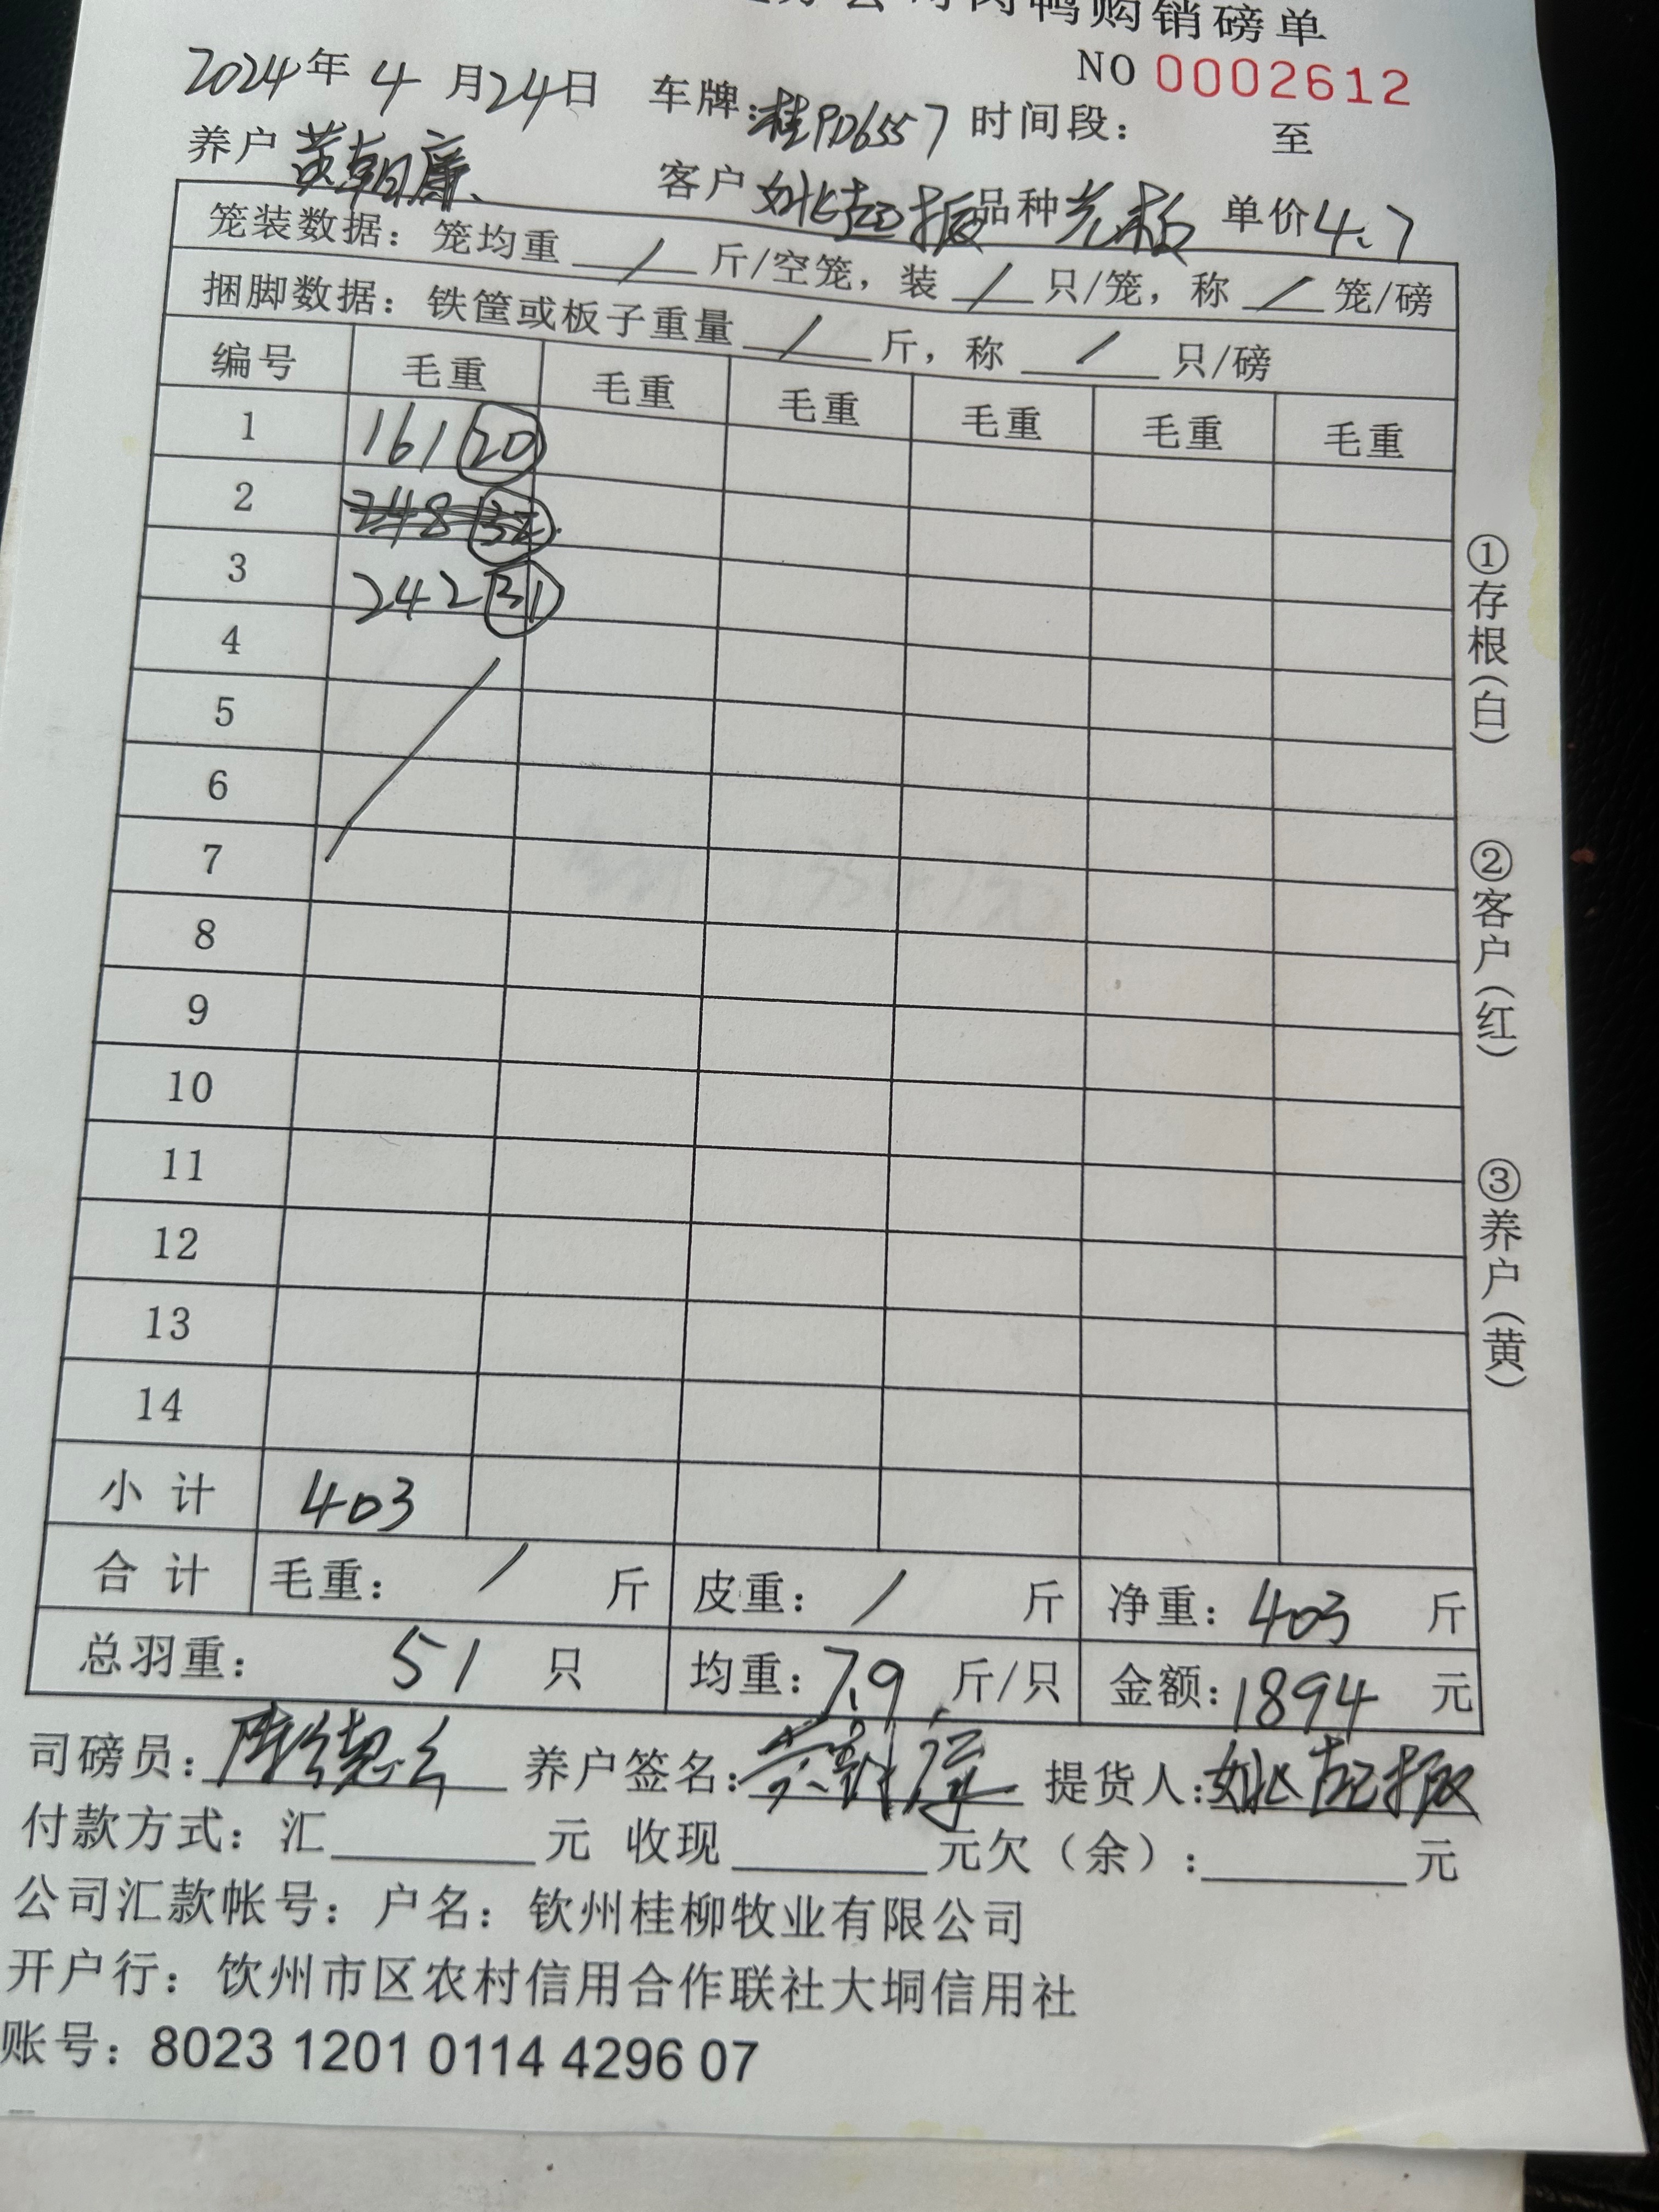 公司肉鸭购销磅单
NO 0002612
2024年 4 月24日 车牌:桂PD6557 时间段: 至
养户 黄朝康 客户 姚起振 品种 单价4.7
笼装数据:笼均重 / 斤/空笼,装 / 只/笼,称 / 笼/磅
捆脚数据:铁筐或板子重量 / 斤,称 / 只/磅
编号 毛重 毛重 毛重 毛重 毛重 毛重
1 161 20
2 248 32
3 242 31
4
5
6
7
8
9
10
11
12
13
14
小计 403
合计 毛重: / 斤 皮重: / 斤 净重: 403 斤
总羽重: 51 只 均重: 7.9 斤/只 金额: 1894 元
司磅员: 养户签名: 提货人: 姚起振
付款方式:汇 元 收现 元欠(余): 元
公司汇款帐号:户名:钦州桂柳牧业有限公司
开户行:饮州市区农村信用合作联社大垌信用社
账号:8023 1201 0114 4296 07
①存根(白)
②客户(红)
③养户(黄)